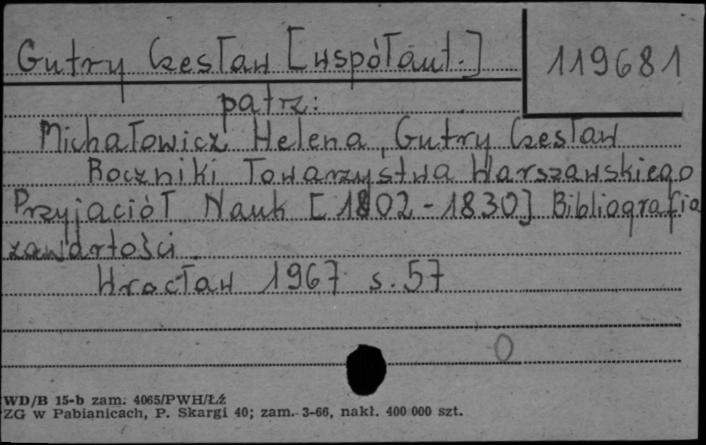 Gutry Czesław [współaut.]
119681
patrz:
Michałowicz Helena, Gutry Czesław
Roczniki Towarzystwa Warszawskiego
Przyjaciół Nauk [1802-1830] Bibliografia
zawartości.
Wrocław 1967 s. 57
0
WD/B 15-b zam. 4065/PWH/Łź
ZG w Pabianicach, P. Skargi 40; zam. 3-66, nakł. 400 000 szt.